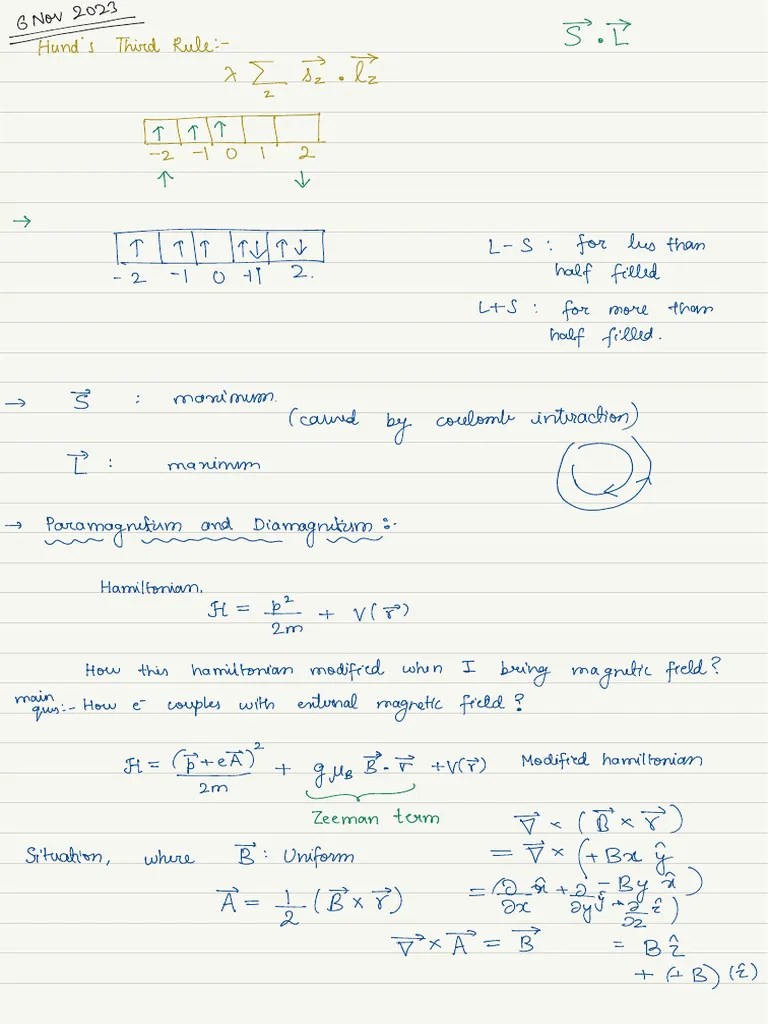 6 Nov 2023
Hund's Third Rule:-
S⃗ . L⃗
λ ∑₂ s⃗₂ . l⃗₂
↑ ↑ ↑
-2 -1 0 1 2
↑ ↓
→
↑ ↑ ↑ ↑↓ ↑↓
-2 -1 0 +1 2.
L-S : for less than
half filled
L+S : for more than
half filled.
→ S⃗ : maximum.
(caused by coulomb interaction)
L⃗ : maximum
→ Paramagnetism and Diamagnetism :-
Hamiltonian,
H = p²/2m + V(r⃗)
How this hamiltonian modified when I bring magnetic field?
main
ques:- How e⁻ couples with external magnetic field?
H = (p⃗+eA⃗)²/2m + gμ_B B⃗.σ⃗ + V(r⃗) Modified hamiltonian
Zeeman term
Situation, where B⃗ : Uniform
A⃗ = 1/2 (B⃗ × r⃗)
∇⃗ × A⃗ = B⃗
∇⃗ × (B⃗ × r⃗)
= ∇⃗ × (+Bx ŷ
- By x̂)
= (∂/∂x x̂ + ∂/∂y ŷ + ∂/∂z ẑ)
= B ẑ
+ (+B) (ẑ)